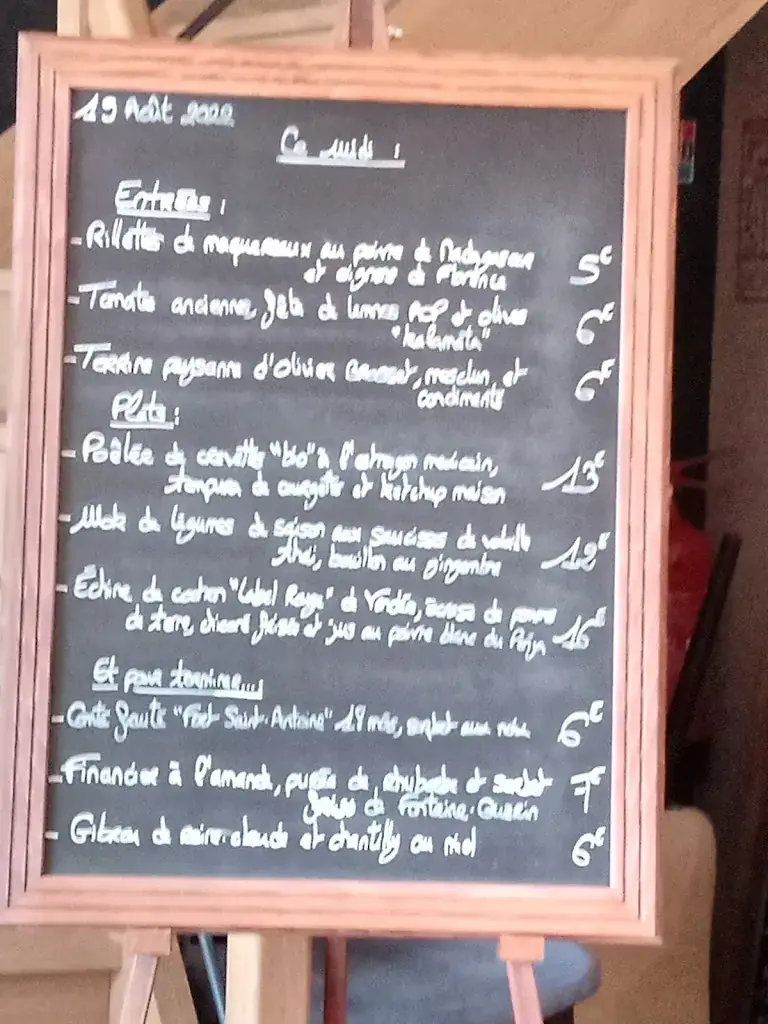 19 Août 2022
Ce midi :
Entrées :
- Rillettes de maquereaux au poivre de Madagascar 5€
et oignons de Florence
- Tomates anciennes, fêta de brebis AOP et olives 6€
"kalamata"
- Terrine paysanne d'Olivier, mesclun, et 6€
condiments
Plats :
- Poêlée de crevettes "bio" à l'estragon mexicain, 13€
tempura de courgettes et ketchup maison
- Wok de légumes de saison aux saucisses de volaille 12€
thaï, bouillon au gingembre
- Échine de cochon "Label Rouge" de Vendée, de pomme
de terre, et jus au poivre blanc du Penja 16€
Et pour terminer...
- Comté fruité "Fort Saint-Antoine" 18 mois, aux noix 6€
- Financier à l'amande, purée de rhubarbe et sorbet 7€
fraises de Fontaine-Guérin
- Gâteau de reine-claude et chantilly au miel 6€